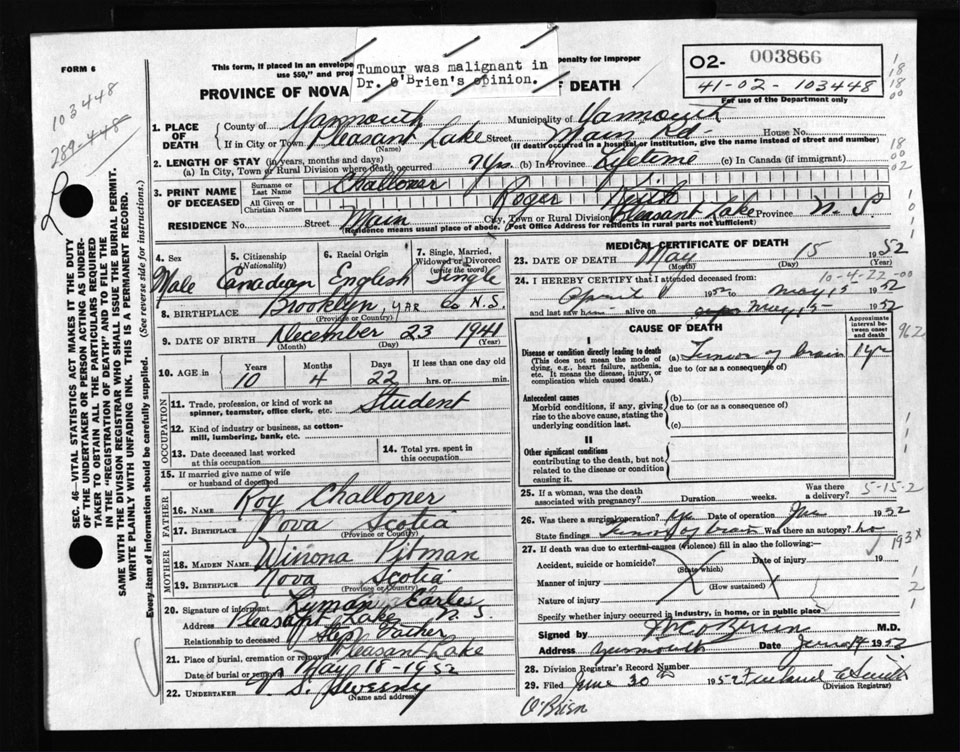 FORM 6
This form, if placed in an envelope
penalty for improper
use $50," and
Tumour was malignant in
Dr. O'Brien's opinion.
O2- 003866
41-02-103448
For use of the Department only
PROVINCE OF NOVA
OF DEATH
103448
289-448
1. PLACE OF DEATH
County of Yarmouth Municipality of Yarmouth
If in City or Town Pleasant Lake Street Main Rd. House No.
(Name) (If death occurred in a hospital or institution, give the name instead of street and number)
2. LENGTH OF STAY (in years, months and days)
(a) In City, Town or Rural Division where death occurred 7 yrs. (b) In Province Lifetime (c) In Canada (if immigrant)
3. PRINT NAME OF DECEASED
Surname or Last Name Challoner
All Given or Christian Names Roger Keith
RESIDENCE No. Street Main City, Town or Rural Division Pleasant Lake Province N. S.
(Residence means usual place of abode. (Post Office Address for residents in rural parts not sufficient)
4. Sex Male
5. Citizenship (Nationality) Canadian
6. Racial Origin English
7. Single, Married, Widowed or Divorced (write the word) Single
8. BIRTHPLACE Brooklyn YAR Co N.S.
(Province or Country)
9. DATE OF BIRTH December 23 1941
(Month) (Day) (Year)
10. AGE in Years 10 Months 4 Days 22 If less than one day old hrs. or min.
OCCUPATION
11. Trade, profession, or kind of work as spinner, teamster, office clerk, etc. Student
12. Kind of industry or business, as cotton-mill, lumbering, bank, etc.
13. Date deceased last worked at this occupation
14. Total yrs. spent in this occupation
15. If married give name of wife or husband of deceased
FATHER
16. NAME Roy Challoner
17. BIRTHPLACE Nova Scotia
(Province or Country)
MOTHER
18. MAIDEN NAME Winona Pitman
19. BIRTHPLACE Nova Scotia
(Province or Country)
20. Signature of informant Lyman Earles
Address Pleasant Lake N. S.
Relationship to deceased Step Father
21. Place of burial, cremation or removal Pleasant Lake
Date of burial or removal May 18-1952
22. UNDERTAKER S. Sweeny
(Name and address)
MEDICAL CERTIFICATE OF DEATH
23. DATE OF DEATH May 15 1952
(Month) (Day) (Year)
10-4-22-00
24. I HEREBY CERTIFY that I attended deceased from:
April 1952 to May 15 1952
and last saw him alive on May 15 1952
CAUSE OF DEATH
Approximate interval between onset and death
I
Disease or condition directly leading to death
(This does not mean the mode of dying, e.g., heart failure, asthenia, etc. It means the disease, injury, or complication which caused death.)
(a) Tumor of brain 1 yr
due to (or as a consequence of)
Antecedent causes
Morbid conditions, if any, giving rise to the above cause, stating the underlying condition last.
(b)
due to (or as a consequence of)
(c)
II
Other significant conditions
contributing to the death, but not related to the disease or condition causing it.
25. If a woman, was the death associated with pregnancy? Duration weeks. Was there a delivery?
5-15-2
26. Was there a surgical operation? yes Date of operation 1952
State findings Tumor of brain Was there an autopsy? no
193X
27. If death was due to external causes (violence) fill in also the following:—
Accident, suicide or homicide? Date of injury 19
(State which)
Manner of injury
(How sustained)
Nature of injury
Specify whether injury occurred in industry, in home, or in public place
Signed by O'Brien M.D.
Address Yarmouth Date June 14 1952
28. Division Registrar's Record Number
29. Filed June 30th 1952
(Division Registrar)
O'Brien
SEC. 46—VITAL STATISTICS ACT MAKES IT THE DUTY
OF THE UNDERTAKER OR PERSON ACTING AS UNDER-
TAKER TO OBTAIN ALL THE PARTICULARS REQUIRED
IN THE "REGISTRATION OF DEATH" AND TO FILE THE
SAME WITH THE DIVISION REGISTRAR WHO SHALL ISSUE THE BURIAL PERMIT.
WRITE PLAINLY WITH UNFADING INK. THIS IS A PERMANENT RECORD.
Every item of information should be carefully supplied. (See reverse side for instructions.)